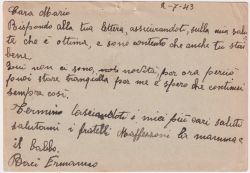 2-7-43
Cara Mario
Rispondo alla tua lettera, assicurandoti, sulla mia salu
te che è ottima, e sono contento che anche tu stai
bene.
Qui non ci sono, novità, per ora perciò
puoi stare tranquilla per me e spero che continui
sempre così.
Termino lasciandoti i miei più cari saluti
salutami i fratelli Maffessoni la mamma e
il babbo.
Baci Ermanno